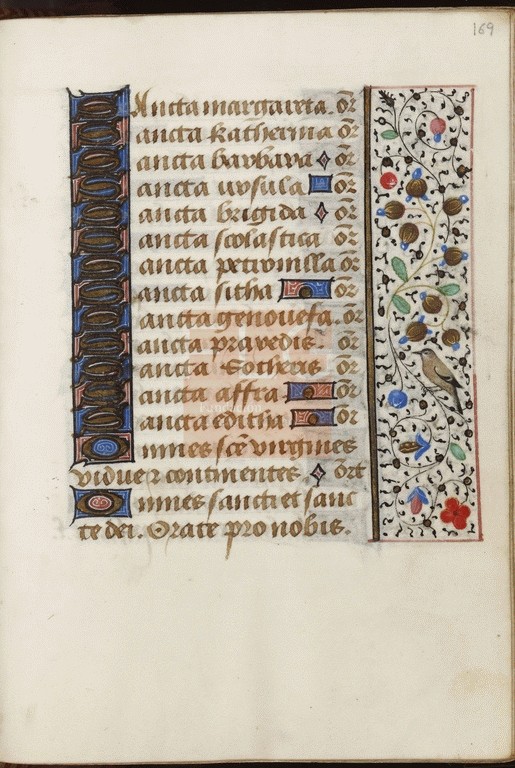 169
Sancta margareta. or̄
Sancta katherina or̄
Sancta barbara or̄
Sancta ursula or̄
Sancta brigida or̄
Sancta scolastica or̄
Sancta petronilla or̄
Sancta sitha or̄
Sancta genouefa. or̄
Sancta praxedis. or̄
Sancta Sotheris or̄
Sancta affra or̄
Sancta editha or̄
Omnes scē virgines
vidue ⁊ continentes. ōrt
Omnes sancti et sanc
te dei. Orate pro nobis.